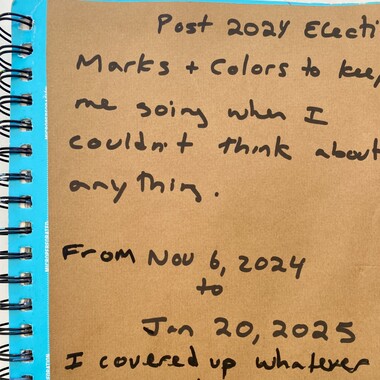 Post 2024 Electi
Marks + Colors to keep
me going when I
couldn't think about
anything.
From Nov 6, 2024
to
Jan 20, 2025
I covered up whatever